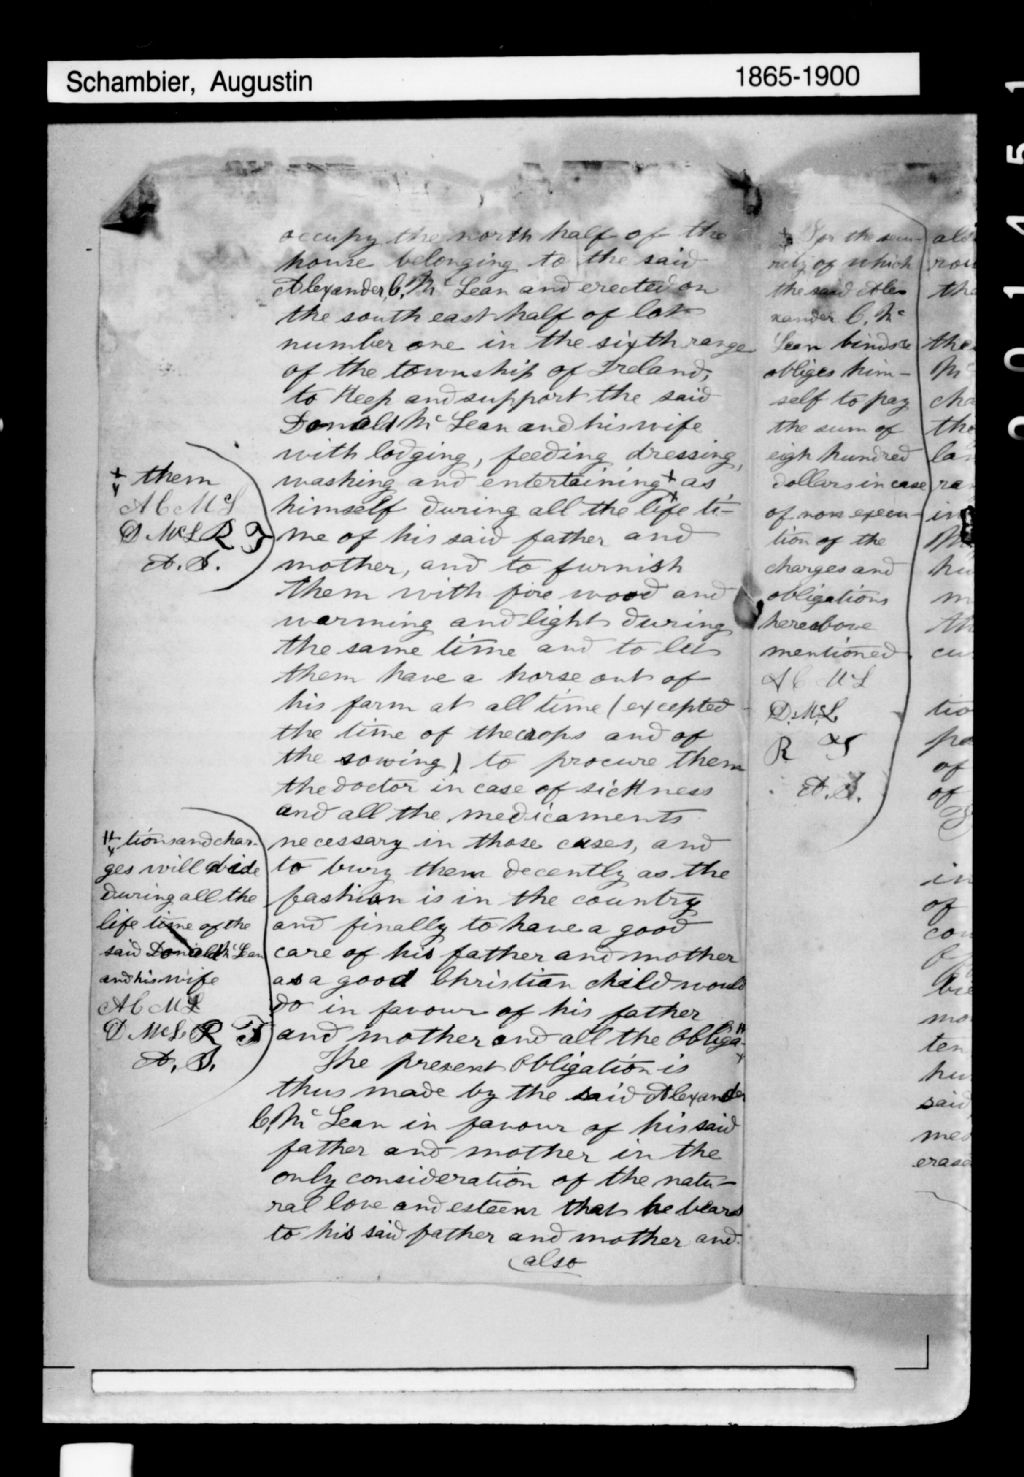 Schambier, Augustin
1865-1900
occupy the north half of the
house belonging to the said
Alexander C. Mc Lean and erected on
the south east half of lot
number one in the sixth range
of the township of Ireland,
to Keep and support the said
Donald Mc Lean and his wife
with lodging, feeding dressing,
washing and entertaining + as
himself during all the life ti-
me of his said father and
mother, and to furnish
them with fire wood and
warming and light during
the same time and to let
them have a horse out of
his farm at all time (excepted
the time of the crops and of
the sowing) to procure them
the doctor in case of sickness
and all the medicaments
necessary in those cases, and
to bury them decently as the
fashion is in the country
and finally to have a good
care of his father and mother
as a good Christian child would
do in favour of his father
and mother and all the obliga-
The present obligation is
thus made by the said Alexander
C. Mc Lean in favour of his said
father and mother in the
only consideration of the natu-
ral love and esteem that he bears
to his said father and mother and
also
+ them
A C Mc L
D McL R T
A. S.
tions and char-
ges will
during all the
life time of the
said Donald Mc Lean
and his wife
A C Mc L
D McL R T
A. S.
For the secu-
rity of which
the said Alex
xander C. Mc
Lean binds &
obliges him-
self to pay
the sum of
eigh hundred
dollars in case
of non execu-
tion of the
charges and
obligations
hereabove
mentioned
A C Mc L
D. McL.
R T
A. S.
als
rou
the
the
Mc
cha
tho
lan
ra
in
hu
m
cu
tio
pa
of
of
in
of
con
bie
mo
ten
hu
said
mea
erase
2 0 1 4 5 1